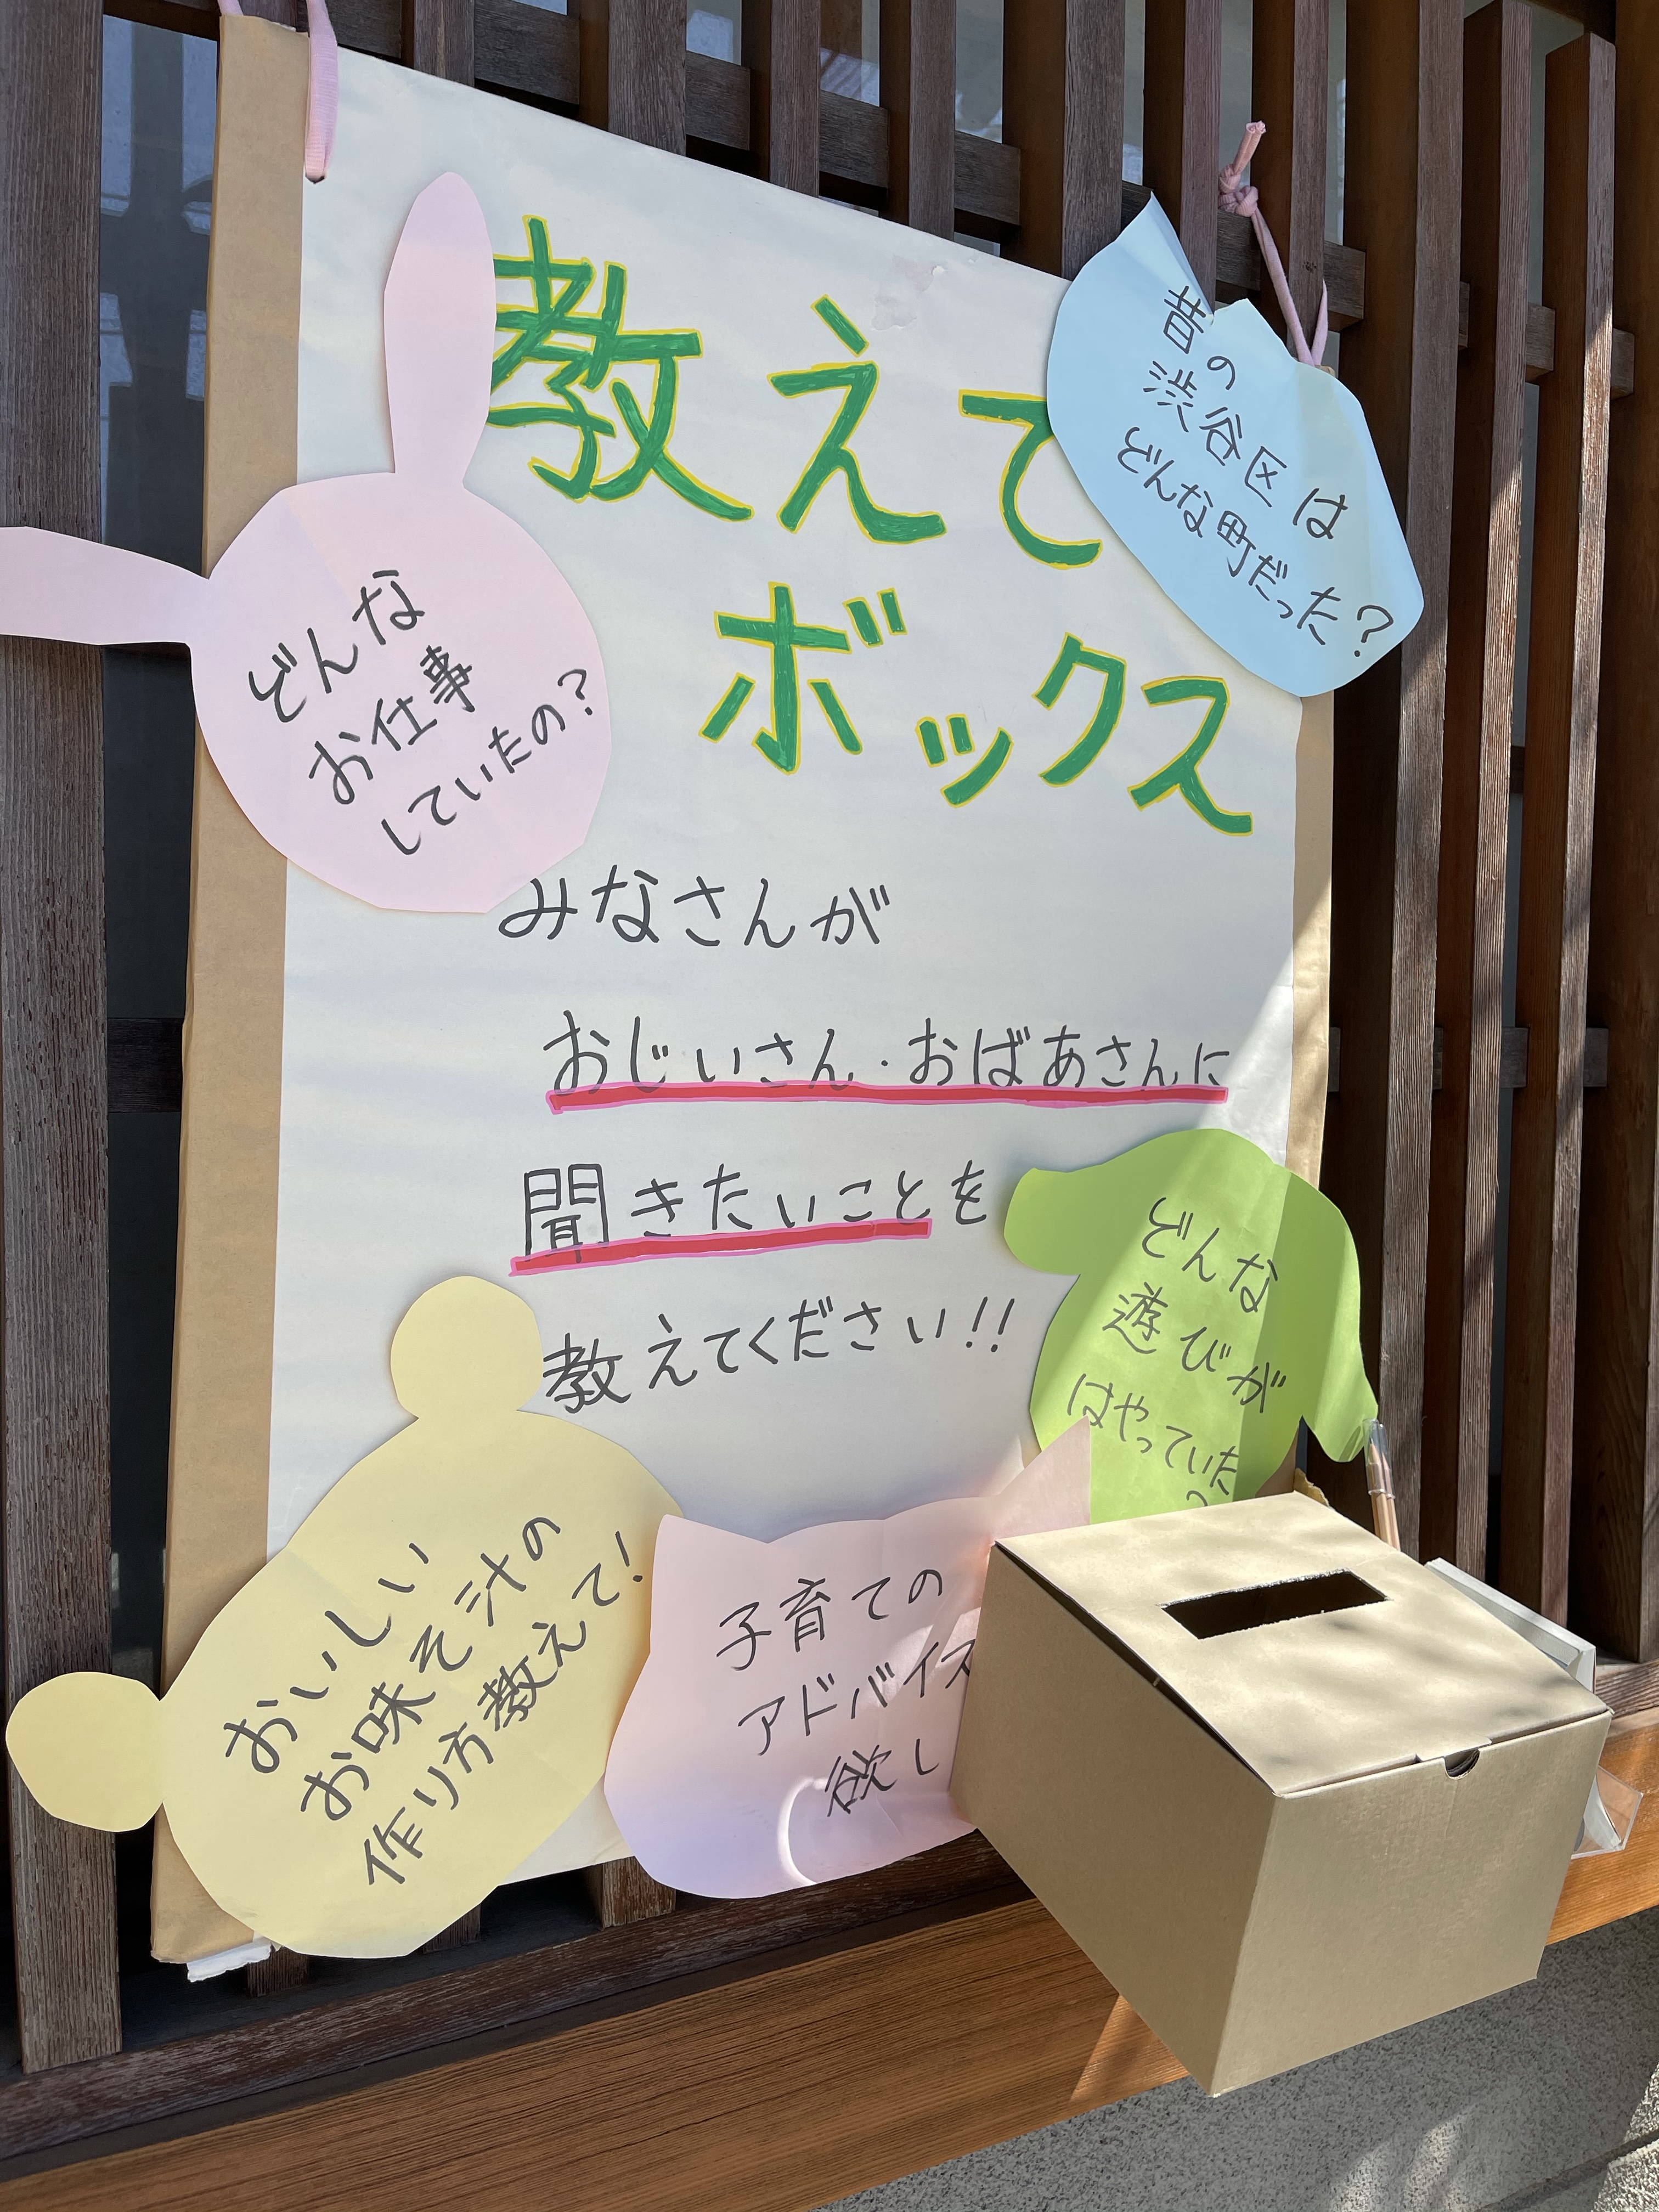 教えて
ボックス
昔の
渋谷区は
どんな町だった?
どんな
お仕事
していたの?
みなさんが
おじいさん・おばあさんに
聞きたいことを
教えてください!!
どんな
遊びが
はやっていた
?
おいしい
お味そ汁の
作り方教えて!
子育ての
アドバイス
欲し